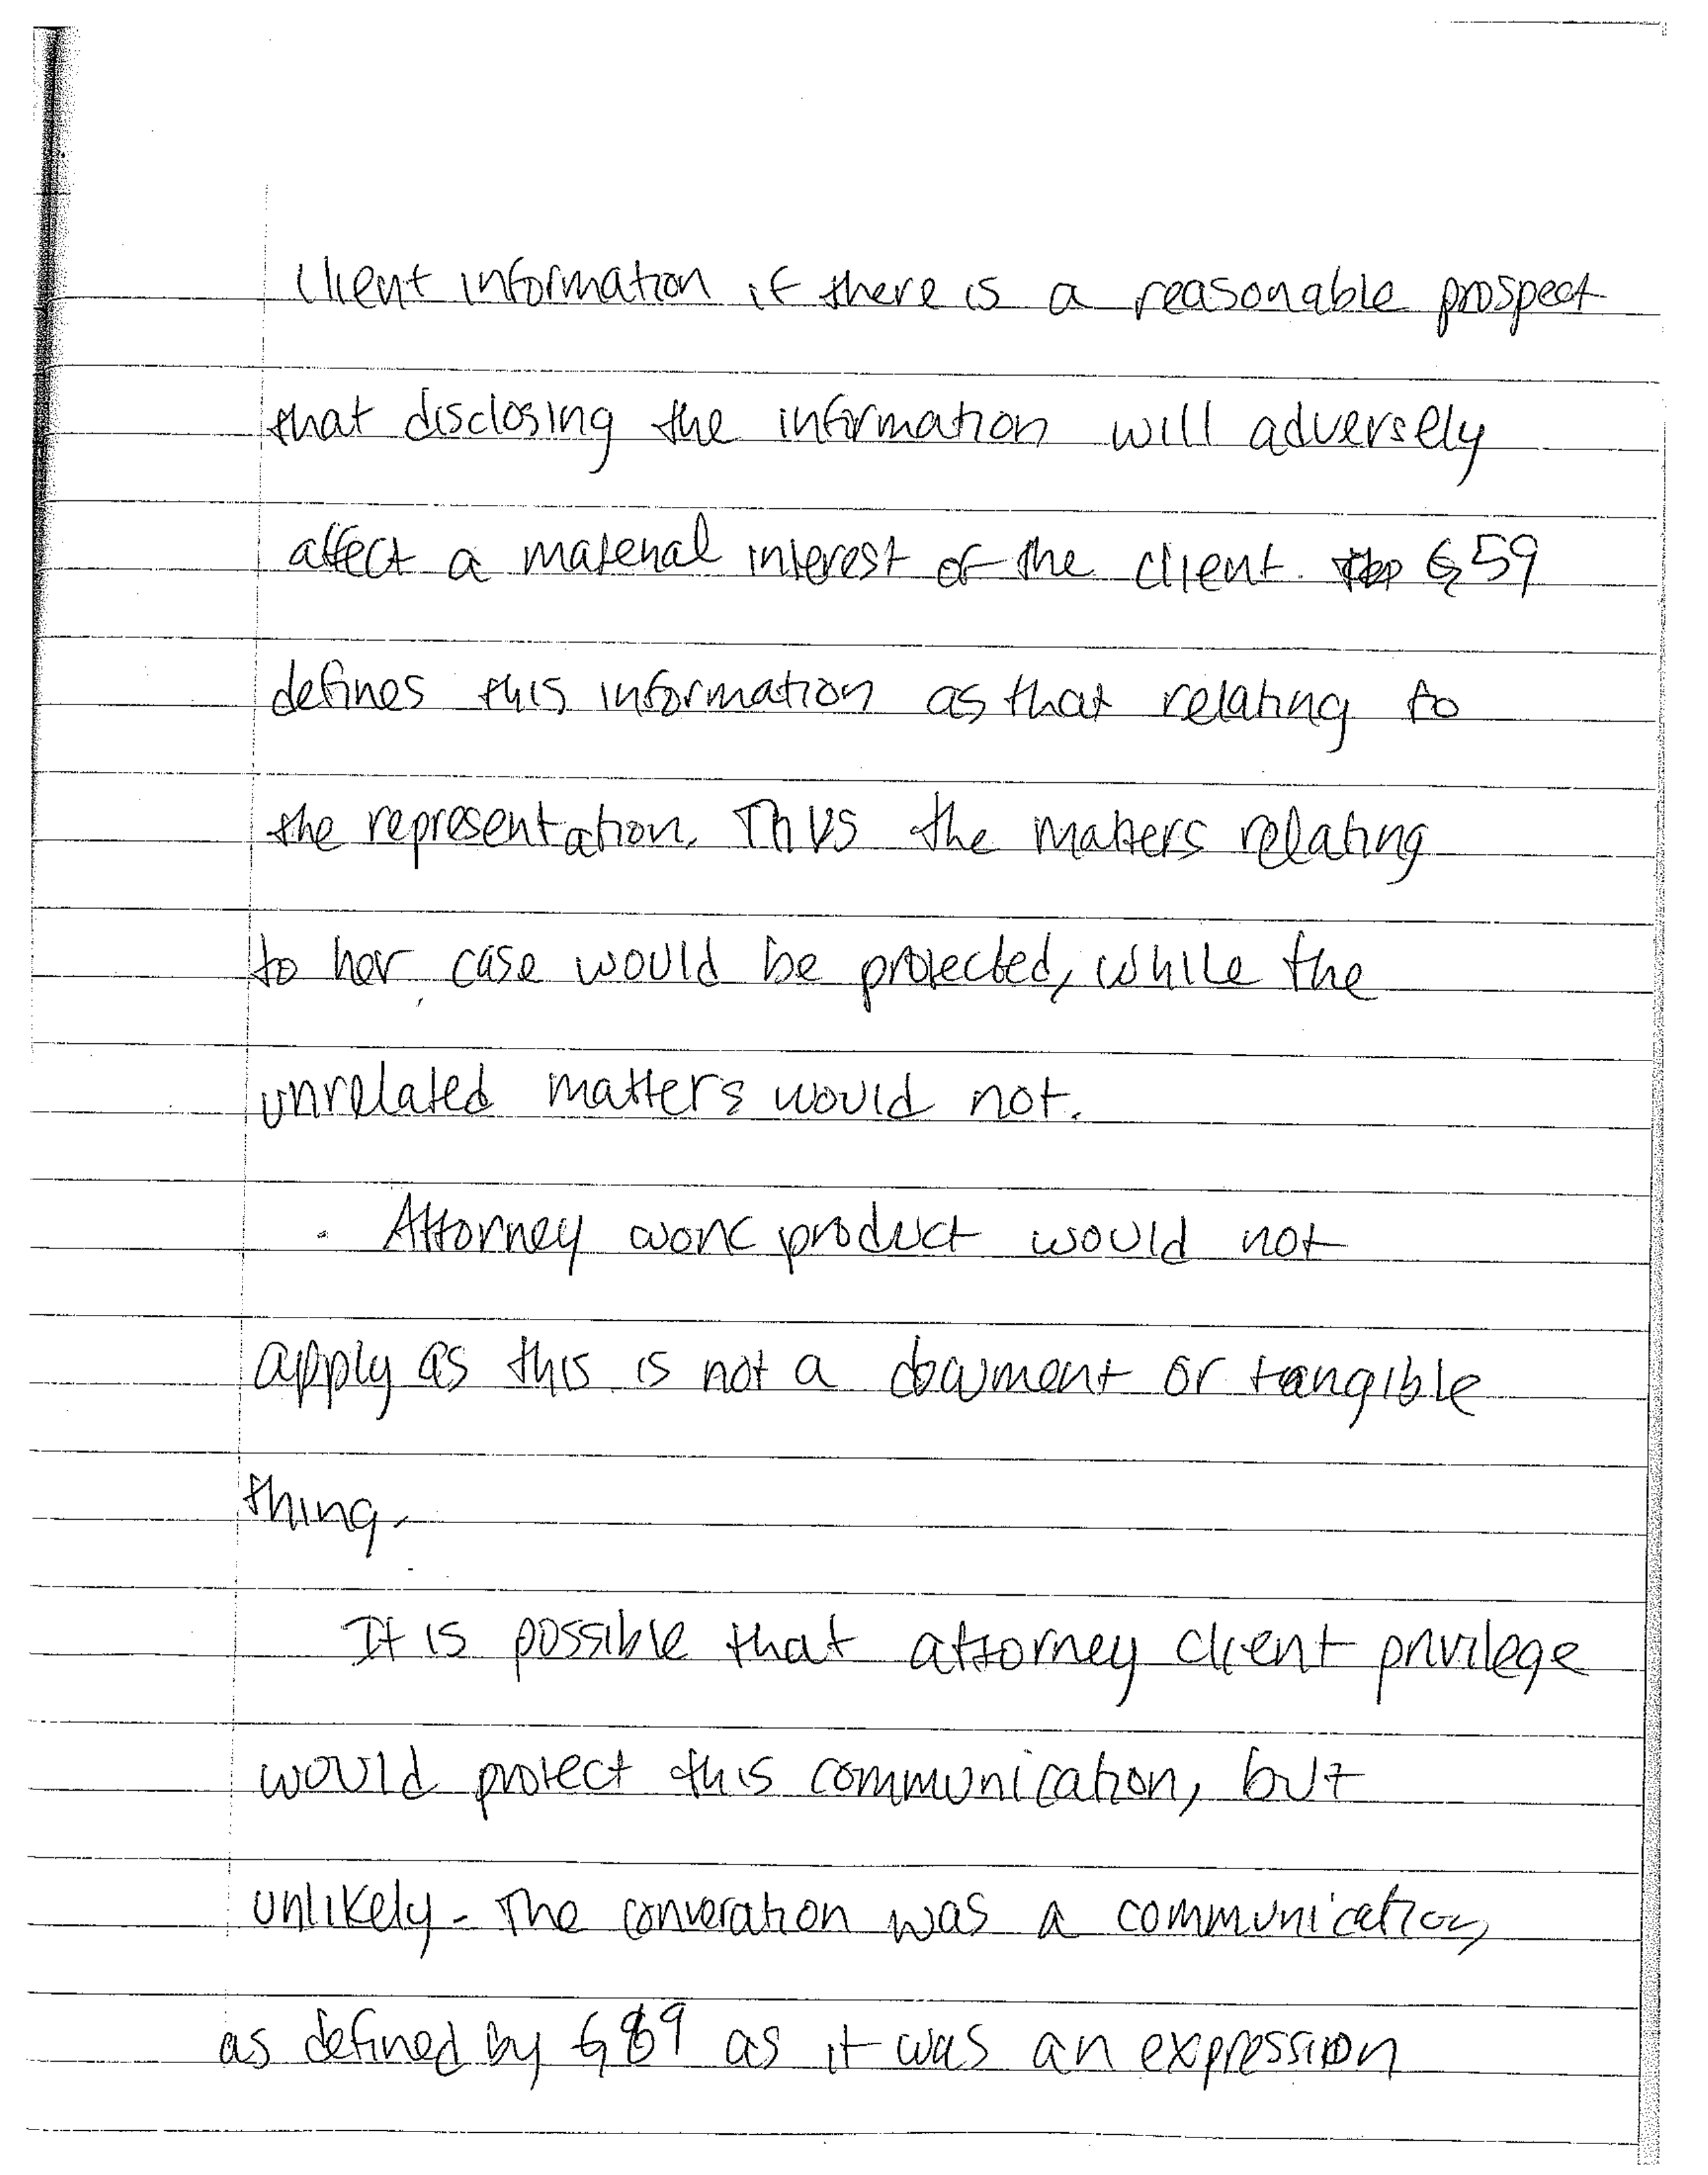 client information if there is a reasonable prospect
that disclosing the information will adversely
affect a material interest of the client. §59
defines this information as that relating to
the representation. Thus the matters relating
to her case would be protected, while the
unrelated matters would not.
Attorney work product would not
apply as this is not a document or tangible
thing.
It is possible that attorney client privilege
would protect this communication, but
unlikely. The converation was a communication,
as defined by §69 as it was an expression